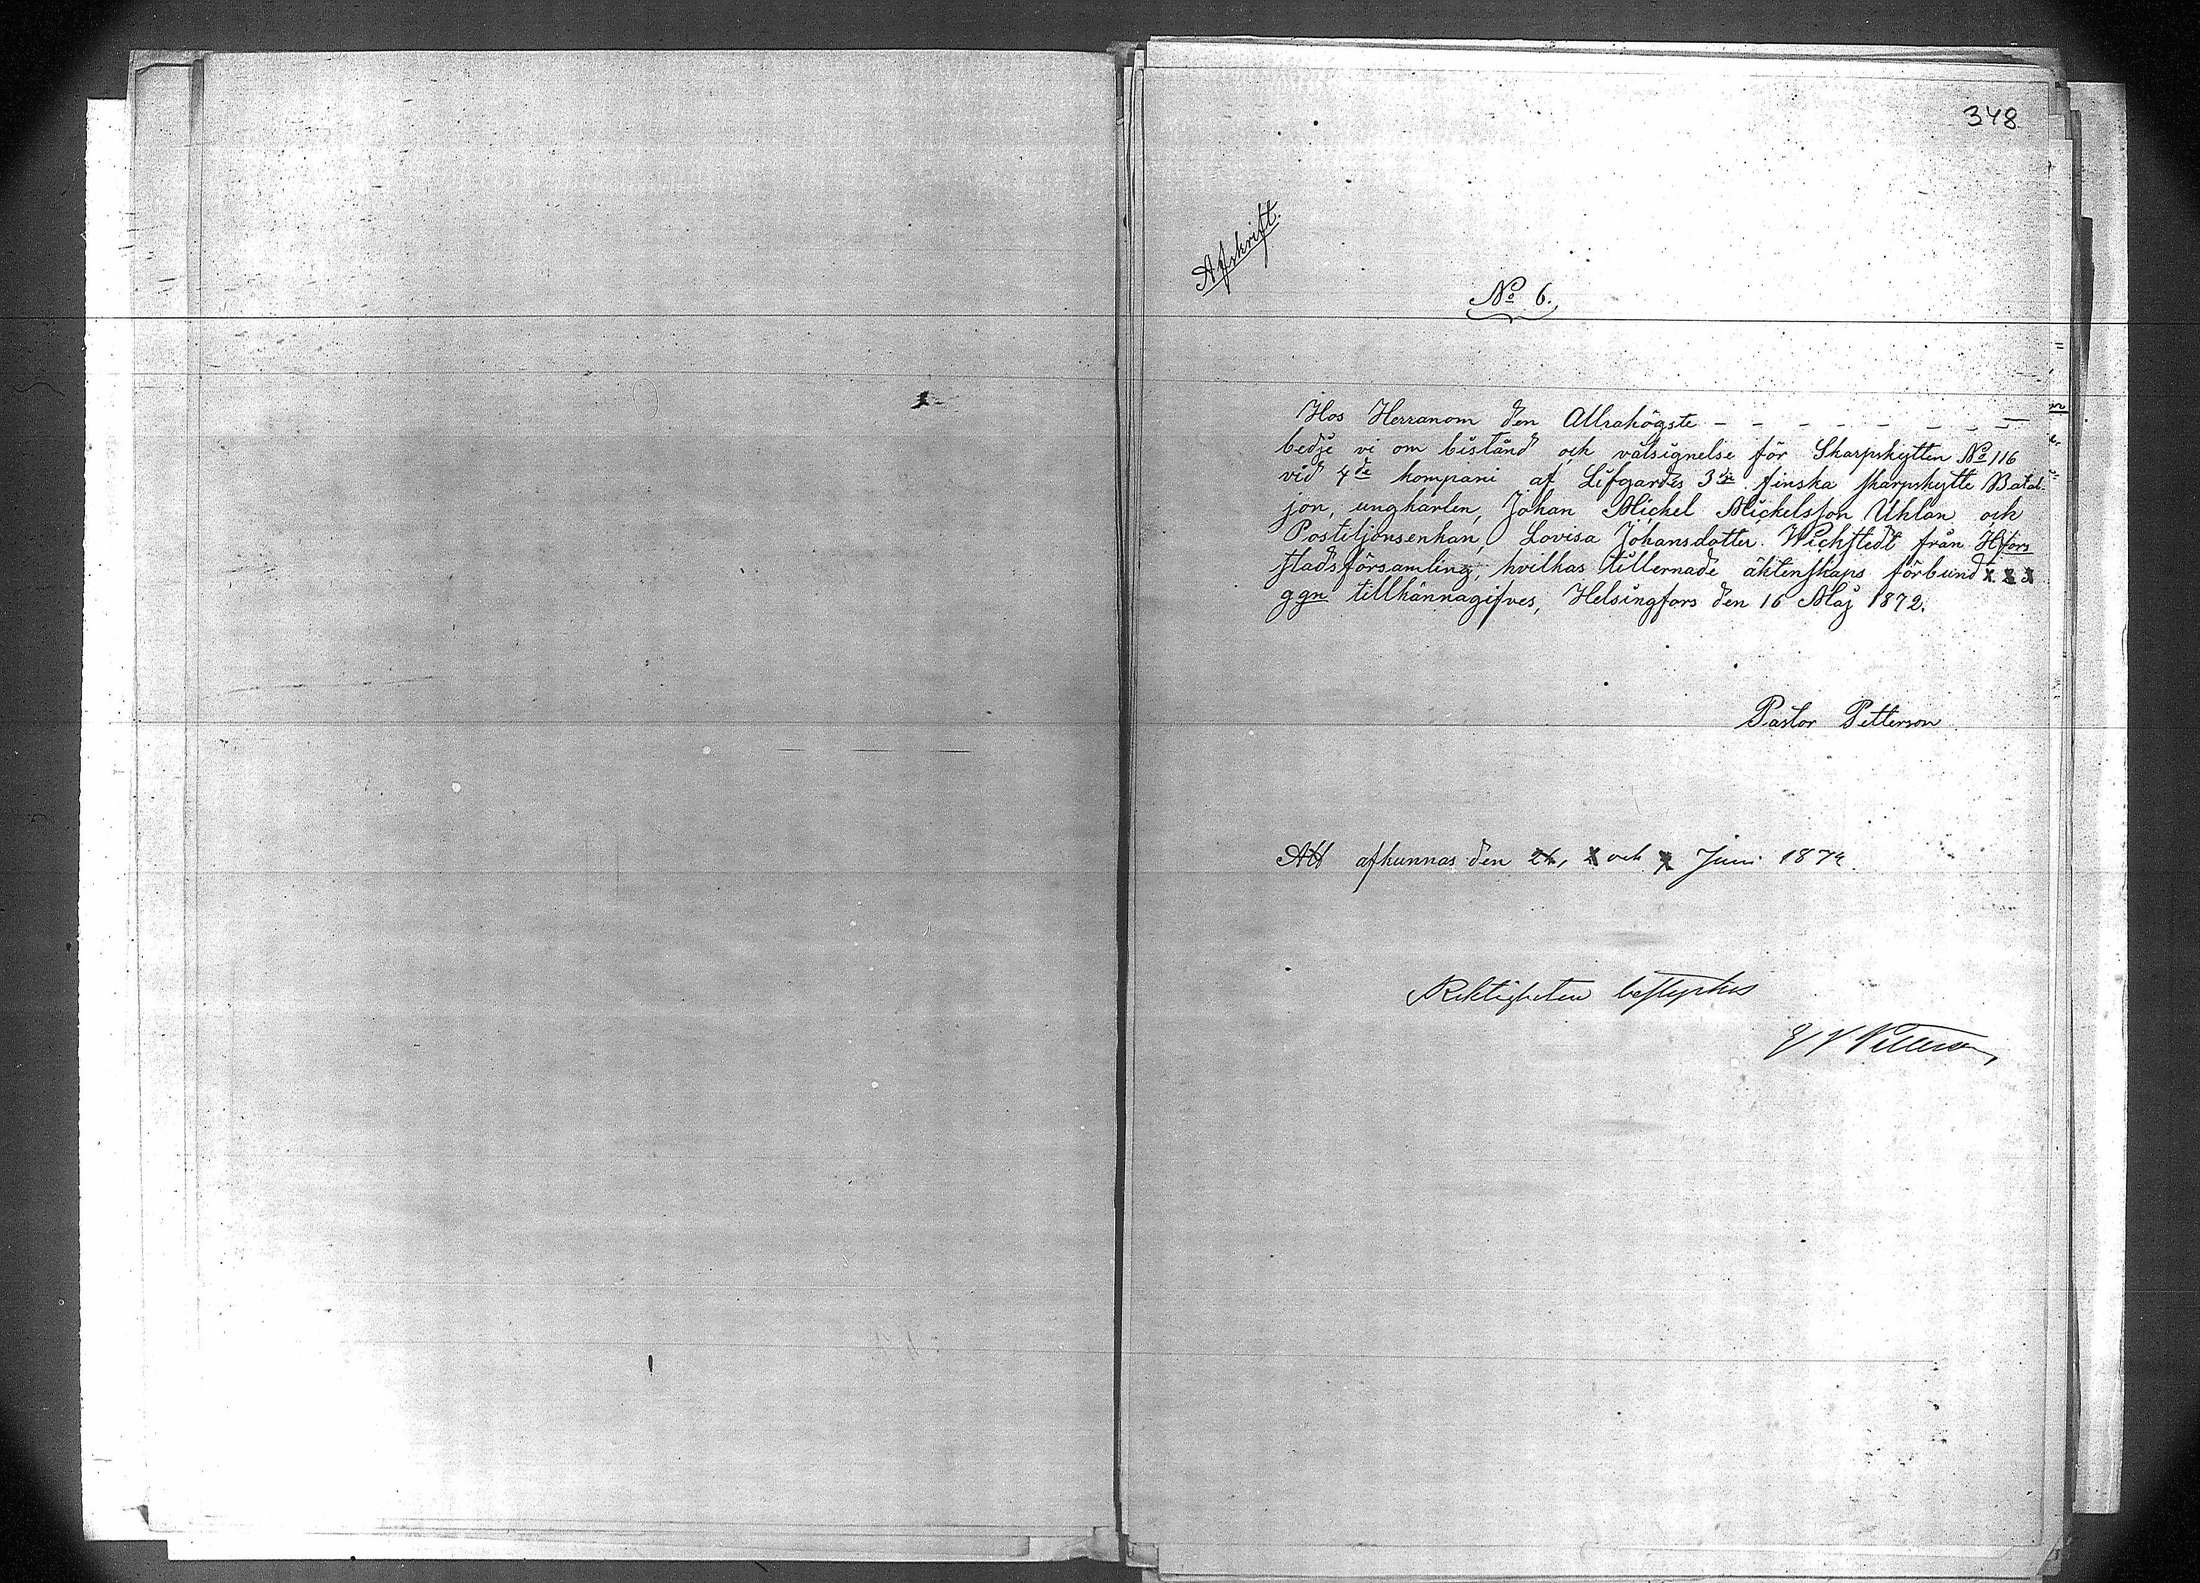 348
Afskrift.
No 6.
Hos Herranom den Allrahögste - - - - - - - -
bedje vi om bistånd och välsignelse för Skarpskytten No 116
vid 4de kompani af Lifgardes 3dje finska skarpskytte Batal-
jon, ungkarlen, Johan Mickel Mickelsson Uhlan och
Postiljonsenkan, Lovisa Johansdotter Wickstedt från Hfors
stadsförsamling, hvilkas tillernade äktenskaps förbund
ggn tillkännagifves, Helsingfors den 16 Maj 1872.
Pastor Petterson
Att afkunnas den 26, och Juni 1872.
Riktigheten bestyrkes
Petterson